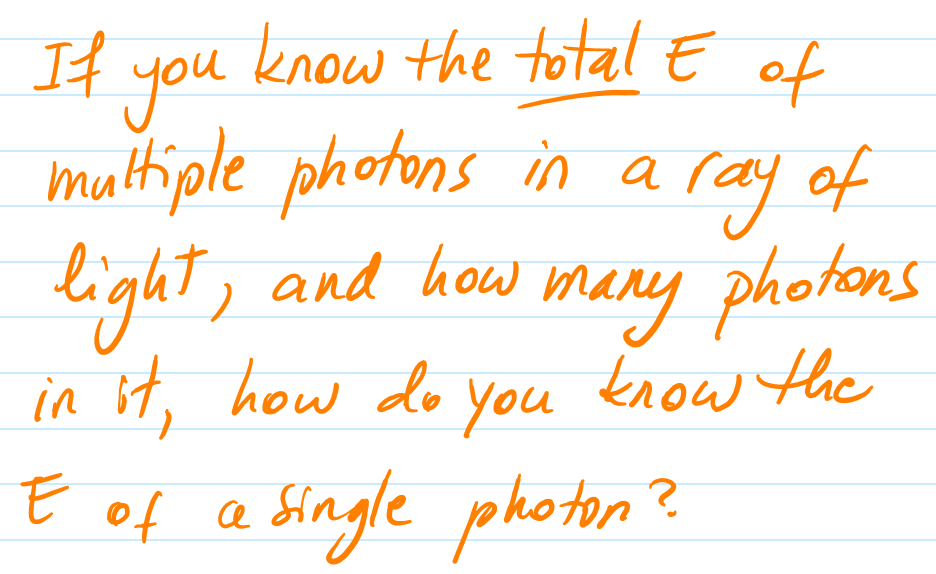 If you know the total E of
multiple photons in a ray of
light, and how many photons
in it, how do you know the
E of a single photon?